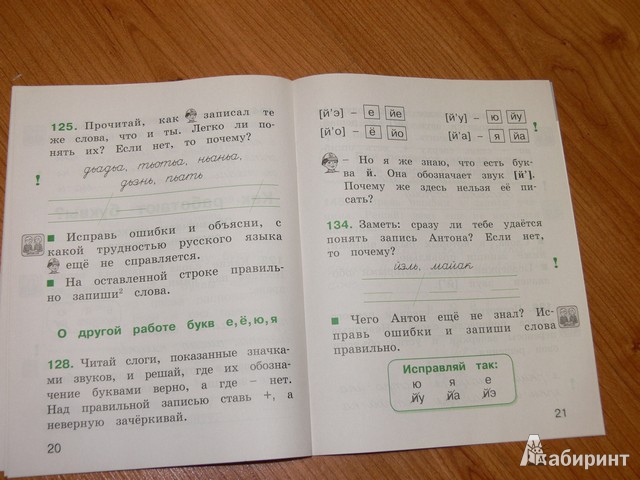 125. Прочитай, как записал те
же слова, что и ты. Легко ли по-
нять их? Если нет, то почему?
дьадьа, тьотьа, ньаньа,
дьэнь, пьать.
!
Исправь ошибки и объясни, с
какой трудностью русского языка
ещё не справляется.
На оставленной строке правиль-
но запиши² слова.
О другой работе букв е, ё, ю, я
128. Читай слоги, показанные значка-
ми звуков, и решай, где их обозна-
чение буквами верно, а где – нет.
Над правильной записью ставь +, а
неверную зачёркивай.
20
[й'э] – е йе [й'у] – ю йу
[й'о] – ё йо [й'а] – я йа
!
– Но я же знаю, что есть бук-
ва й. Она обозначает звук [й'].
Почему же здесь нельзя её пи-
сать?
134. Заметь: сразу ли тебе удаётся
понять запись Антона? Если нет,
то почему?
йэль, майак
!
Чего Антон ещё не знал? Ис-
правь ошибки и запиши слова
правильно.
Исправляй так:
ю я е
йу йа йэ
21
Лабиринт